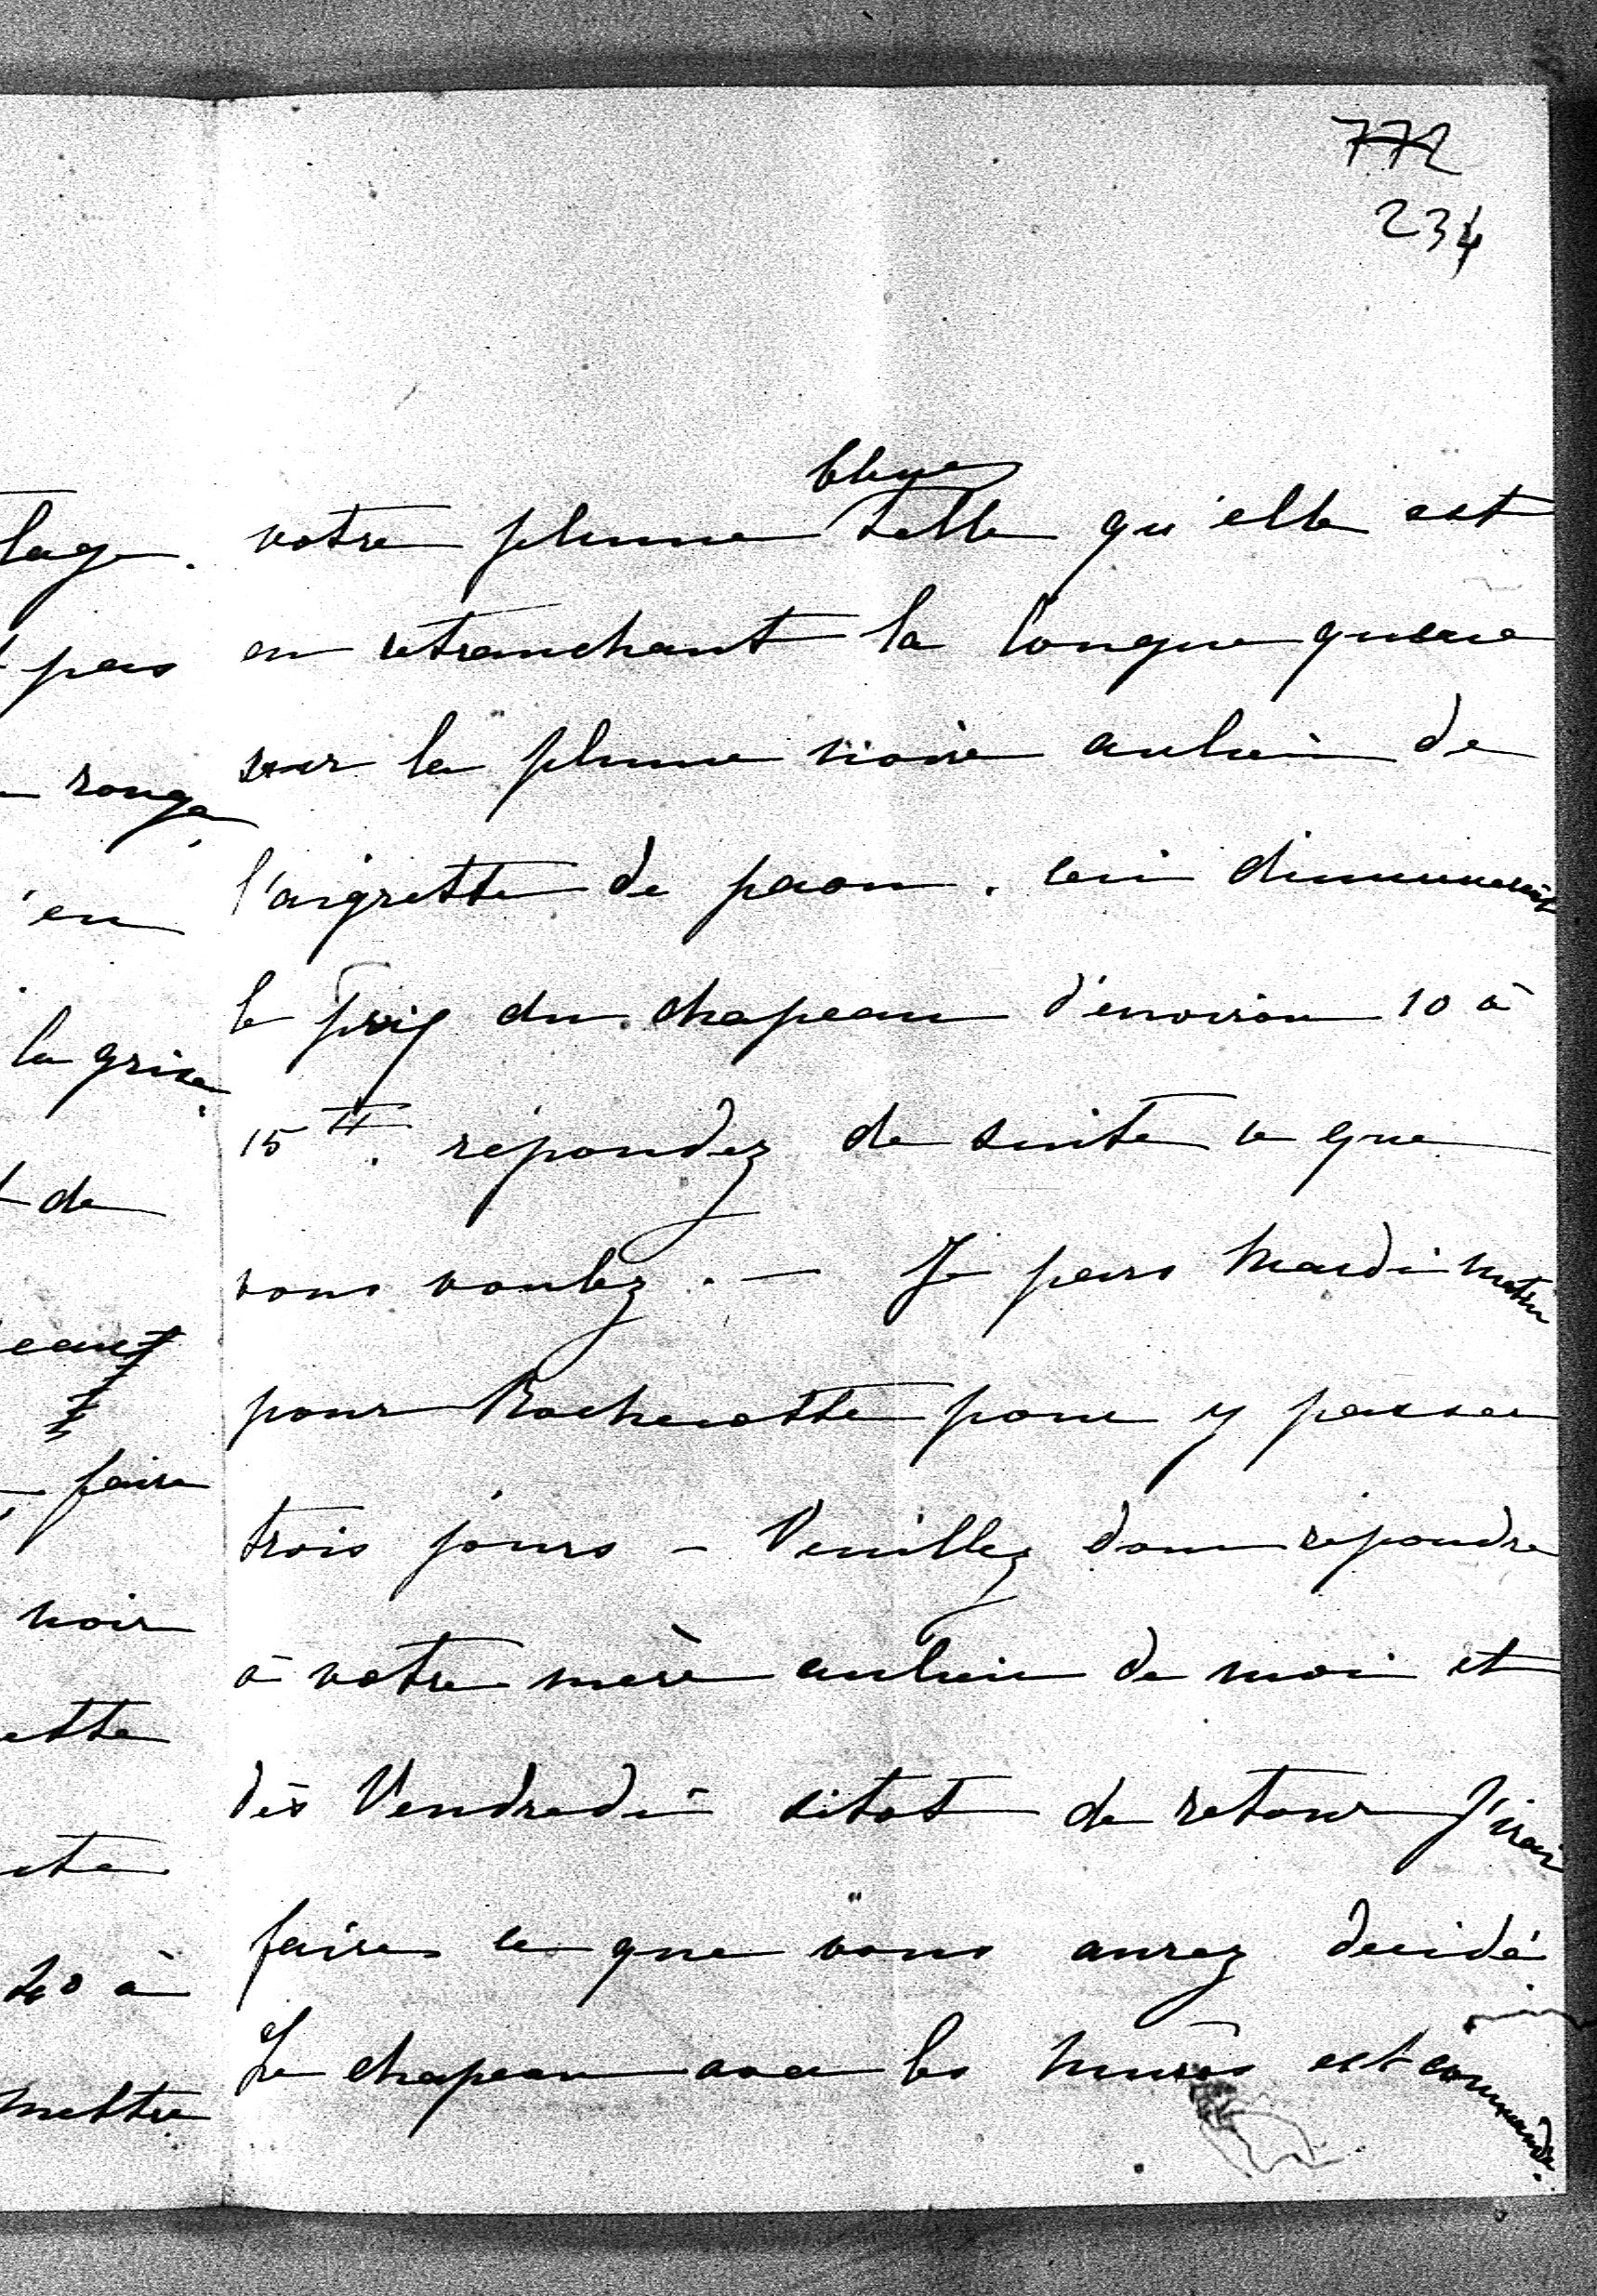 772
234
bleue
votre plume telle qu'elle est
en retranchant la longue queue
sur la plume noire aulieu de
l'aigrette de paon. Ceci diminuerait
le prix du chapeau d'environ 10 à
15 ₶. répondez de suite ce que
vous voulez. — Je pars Mardi matin
pour Rochecotte pour y passer
trois jours — Veuillez donc répondre
à votre mère aulieu de moi et
dès Vendredi sitot de retour J'irai
faire ce que vous aurez decidé
Le chapeau avec les mures est commandé.
lage.
pas
rouge,
'en
la grise.
de
faire
noir
ette
40 à
mettre